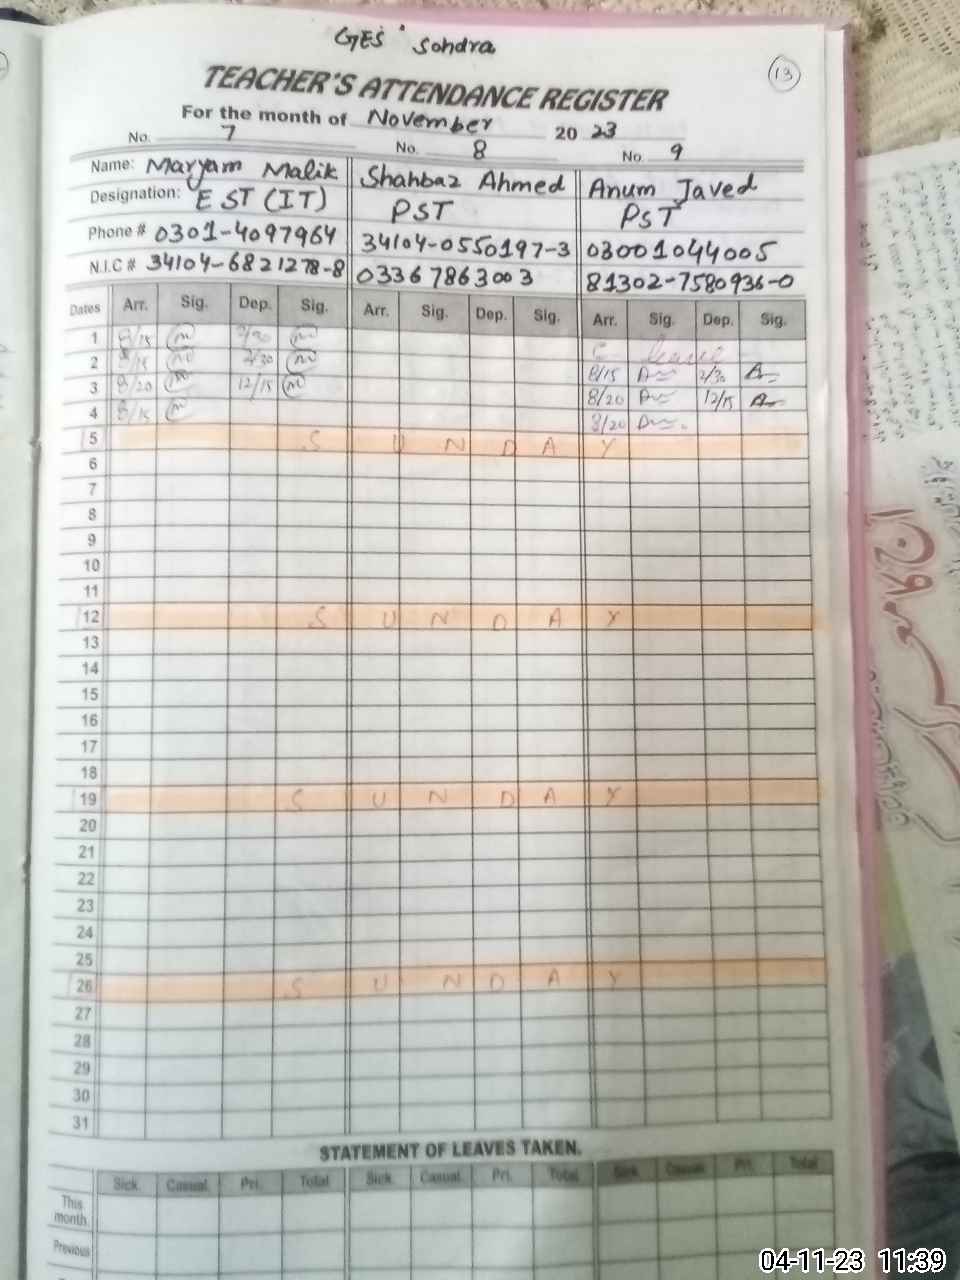 GES Sohdra
13
TEACHER'S ATTENDANCE REGISTER
For the month of November 2023
No. 7 No. 8 No. 9
Name: Maryam Malik Shahbaz Ahmed Anum Javed
Designation: EST (IT) PST PST
Phone # 0301-4097964 34104-0550197-3 03001044005
N.I.C # 34104-6821278-8 03367863003 81302-7580936-0
Dates Arr. Sig. Dep. Sig. Arr. Sig. Dep. Sig. Arr. Sig. Dep. Sig.
1 8/15 m 2/30 m C leave
2 8/15 m 2/30 m 8/15 2/30
3 8/20 m 12/15 m 8/20 12/15
4 8/15 m 8/20
5 S U N D A Y
6
7
8
9
10
11
12 S U N D A Y
13
14
15
16
17
18
19 S U N D A Y
20
21
22
23
24
25
26 S U N D A Y
27
28
29
30
31
STATEMENT OF LEAVES TAKEN.
Sick. Casual. Pri. Total Sick. Casual. Pri. Total Sick. Casual. Pri. Total
This
month
Previous
04-11-23 11:39